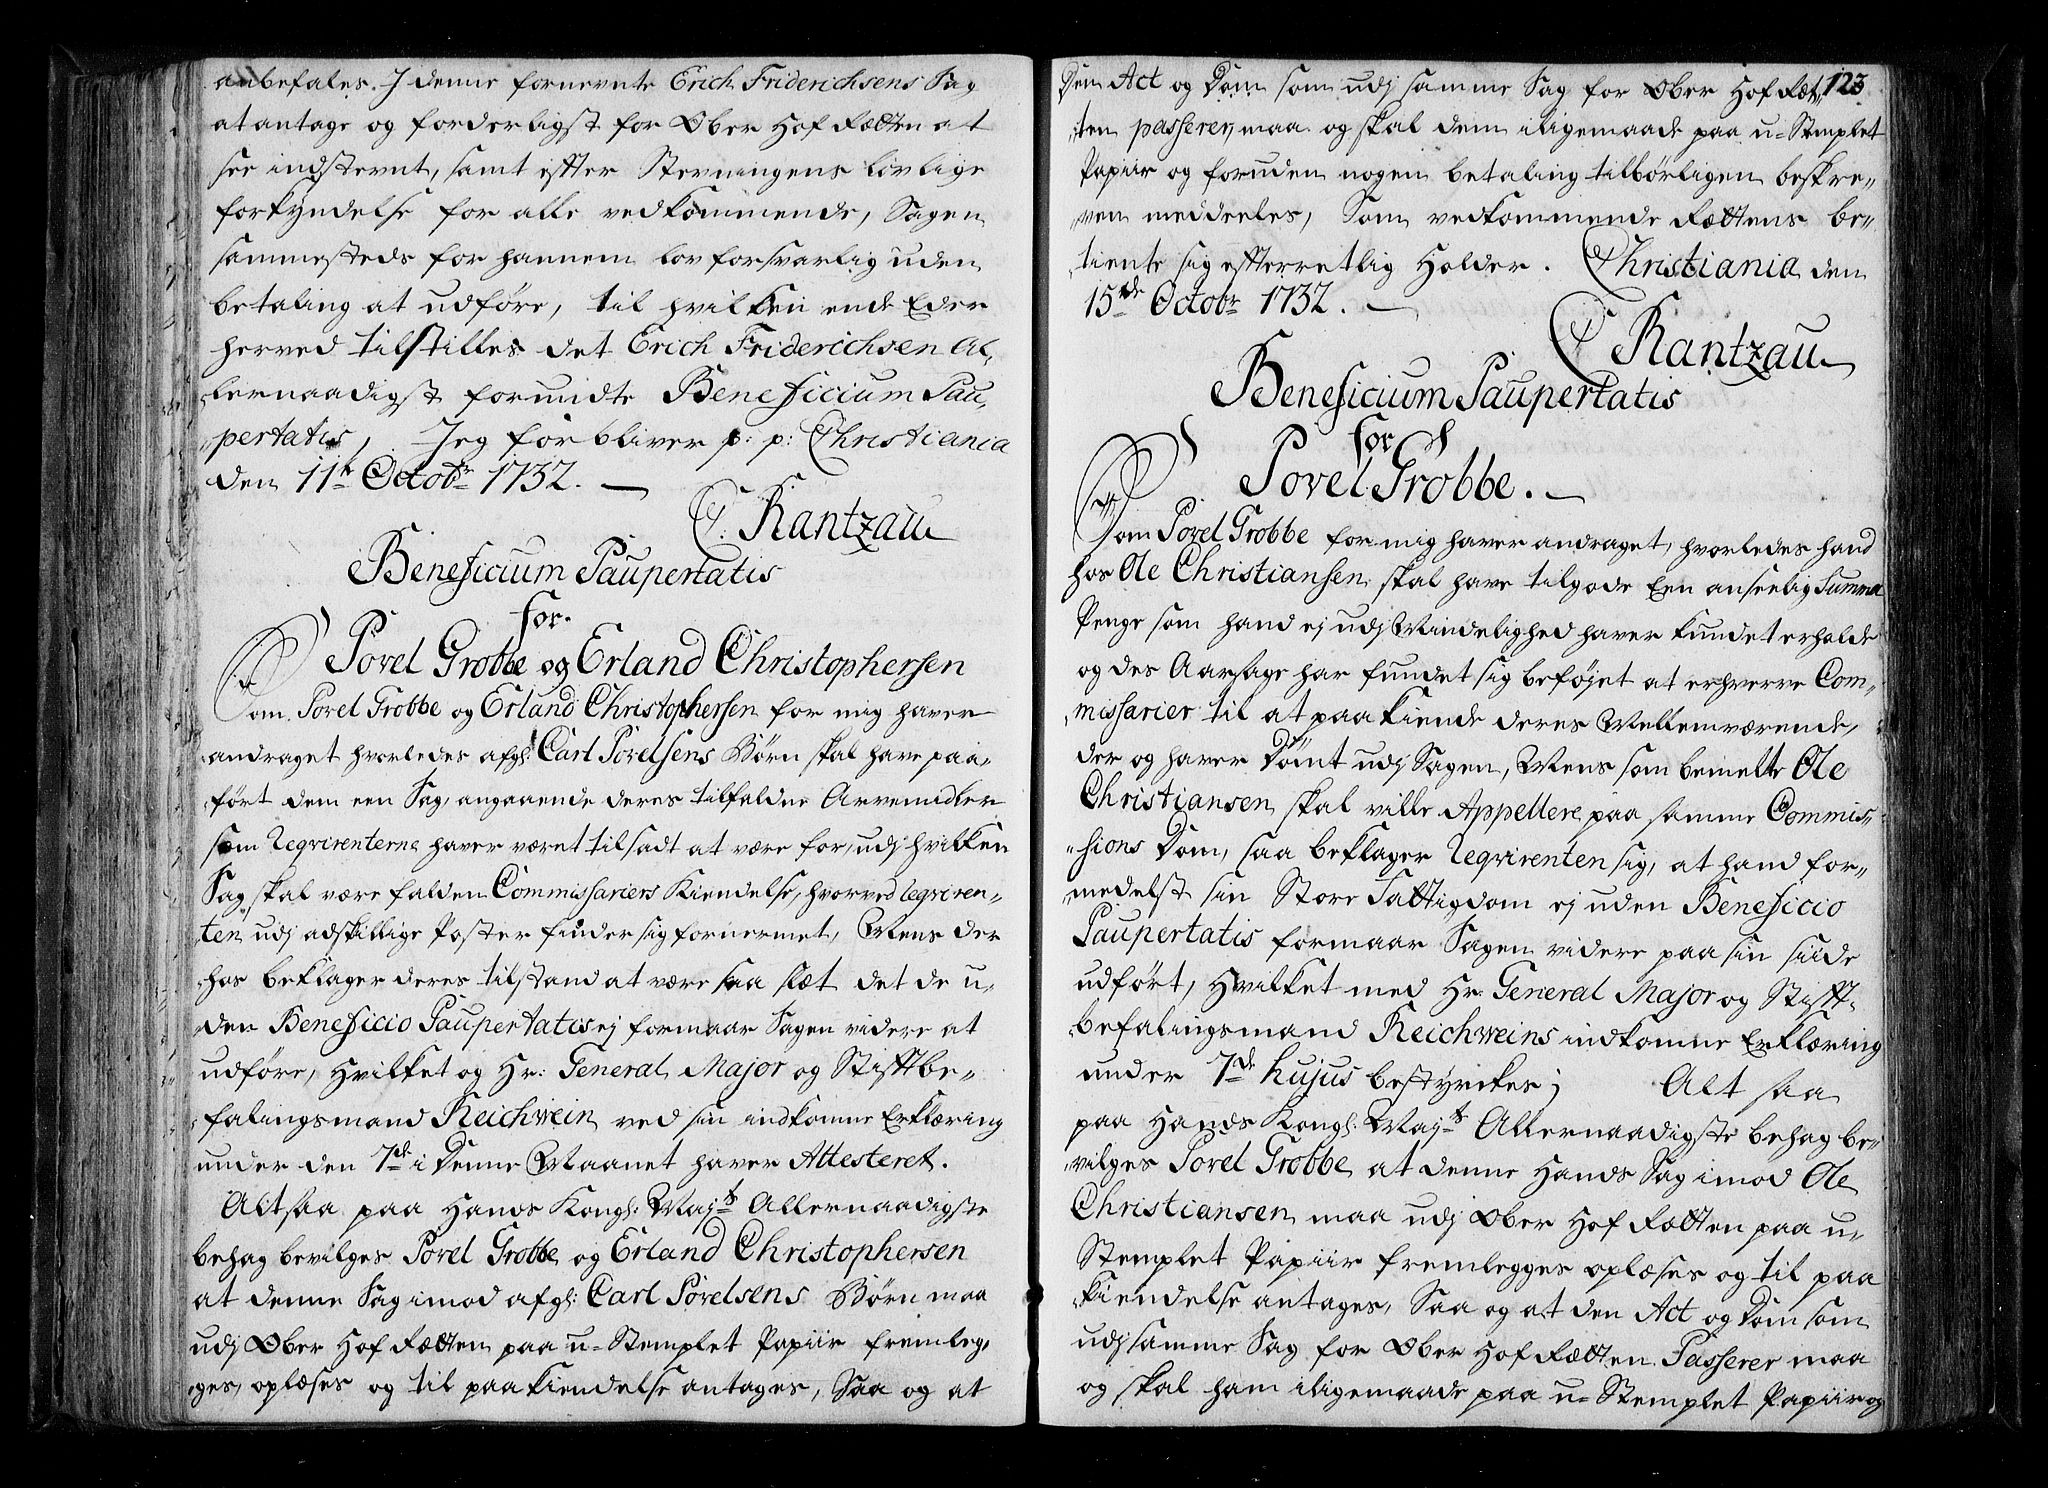 anbefales. I denne fornevnte Erich Friderichsens Sag
at antage og forderligst for Ober Hof Retten at
see indstevnt, samt efter Stevningens lovlige
forkyndelse for alle vedkommende, Sagen
sammesteds for hannem lovforsvarlig uden
betaling at udföre, til hvilken ende Eder
herved tilstilles det Erich Friderichsen Al-
lernaadigst forundte Beneficium Pau-
pertatis, Jeg forbliver p: p: Christiania
den 11te Octobr 1732. —
C. Rantzau
Beneficium Paupertatis
for
Povel Grobbe og Erland Christophersen
Som Povel Grobbe og Erland Christophersen for mig haver
andraget hvorledes afgl: Carl Povelsens Börn skal have paa-
fört dem een Sag, angaaende deres tilfaldne Arvemidler
som Reqvirenterne haver været tilsadt at være for, udj hvilken
Sag skal være falden Commissariers Kiendelse, hvorved reqviren-
ten udj adskillige Poster finder sig fornermet, Mens der
hos beklager deres tilstand at være saa slæt det de u-
den Beneficio Paupertatis ej formaar Sagen videre at
udföre, Hvilket og Hr: General Major og Stiftbe-
falingsmand Reichwein ved sin indkomne Erklæring
under den 7de i denne Maanet haver Attesteret.
Altsaa paa Hands Kongl: Mayts Allernaadigste
behag bevilges Povel Grobbe og Erland Christophersen
at denne Sag imod afgl: Carl Povelsens Börn maa
udj Ober Hof Retten paa u-Stemplet Papiir fremleg-
ges, oplæses og til paakiendelse antages, Saa og at
123
Den Act og Dom som udj samme Sag for Ober Hof Ret-
ten passerer, maa og skal dem iligemaade paa u-Stemplet
Papiir og foruden nogen betaling tilbörligen beskre-
ven meddeeles, Som vedkommende Rettens be-
tiente sig efterretlig Holder. Christiania den
15de Octobr 1732. —
C Rantzau
Beneficium Paupertatis
for
Povel Grobbe. —
Som Povel Grobbe for mig haver andraget, hvorledes hand
hos Ole Christiansen skal have tilgode Een anseelig Summa
Penge som hand ej udj Mindelighed haver kundet erholde
og des Aarsage har fundet sig beföjet at erhverve Com-
missarier til at paakiende deres Mellemværende,
der og haver Dömt udj Sagen, Mens som bemelte Ole
Christiansen skal ville Appellere paa samme Commis-
sions Dom, saa beklager Reqvirenten sig, at hand for-
medelst sin Store Fattigdom ej uden Beneficio
Paupertatis formaar Sagen videre paa sin siide
udfört, Hvilket med Hr: General Major og Stift-
befalingsmand Reichweins indkomne Erklæring
under 7de hujus bestyrckes; Alt saa
paa Hands Kongl: Mayts Allernaadigste behag be-
vilges Povel Grobbe at denne Hands Sag imod Ole
Christiansen maa udj Ober Hof Retten paa u-
Stemplet Papiir fremlegges oplæses og til paa
kiendelse antages, Saa og at den Act og Dom som
udj samme Sag for Ober Hof Retten Passerer maa
og skal ham iligemaade paa u-Stemplet Papiir og